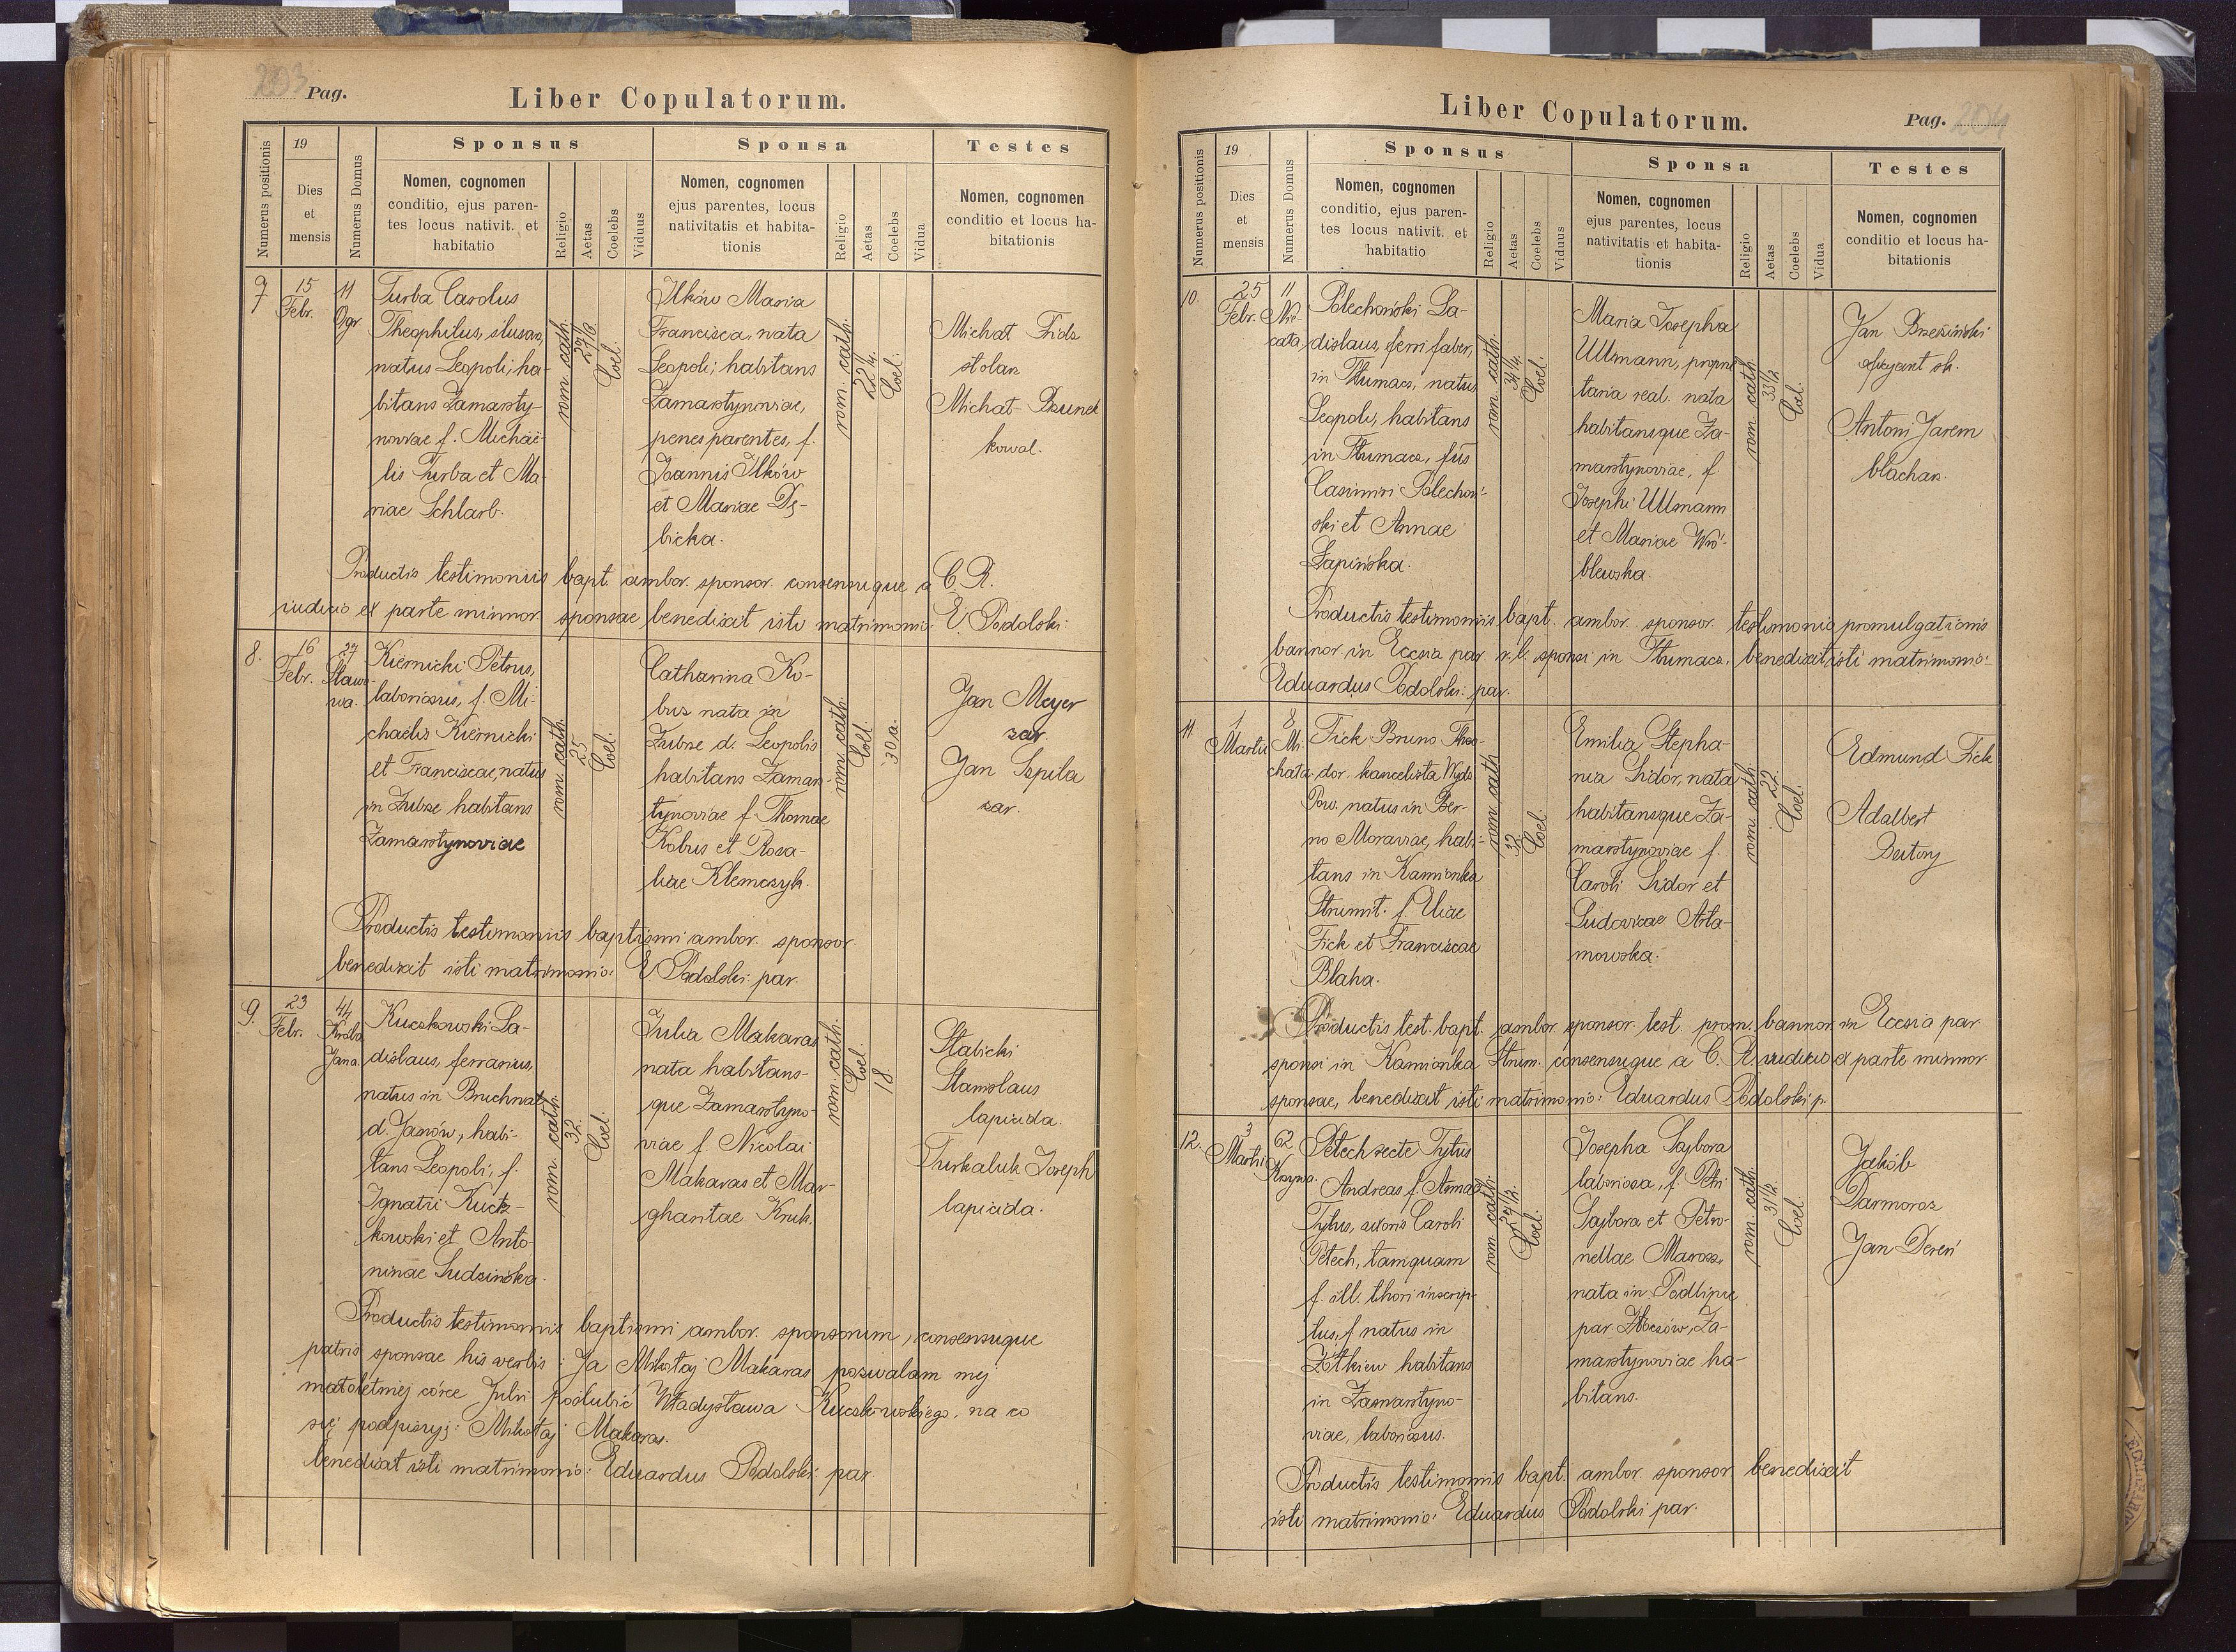 203 Pag.
Liber Copulatorum.
Numerus positionis
19
Dies
et
mensis
Numerus Domus
Sponsus
Nomen, cognomen
conditio, ejus paren-
tes locus nativit. et
habitatio
Religio
Aetas
Coelebs
Viduus
Sponsa
Nomen, cognomen
ejus parentes, locus
nativitatis et habita-
tionis
Religio
Aetas
Coelebs
Vidua
Testes
Nomen, cognomen
conditio et locus ha-
bitationis
7
15
Febr.
11
Ogr.
Turba Carolus
Theophilus, slusarz,
natus Leopoli, ha-
bitans Zamarsty-
noviae f. Michaë-
lis Turba et Ma-
riae Schlarb.
rom. cath.
Coel.
Ilków Maria
Francisca, nata
Leopoli; habitans
Zamarstynoviae,
penes parentes, f.
Joannis Ilków
et Mariae Dę-
bicka.
rom. cath.
22 1/4.
Coel.
Michał Fids
stolarz
Michał Brunek
kowal.
Productis testimoniis bapt. ambor. sponsor. consensuque a C. R.
iudicio ex parte minnor. sponsae benedixit isti matrimonio: E. Podolski:
8.
16
Febr.
27
Sława-
wa.
Kiernicki Petrus,
laboriosus, f. Mi-
chaëlis Kiernicki
et Franciscae, natus
in Zubrze habitans
Zamarstynoviae
rom. cath.
25
Coel.
Catharina Ko-
bus nata in
Zubrze d. Leopolis
habitans Zamars-
tynoviae f. Thomae
Kobus et Rosa-
liae Klemczyk.
rom. cath.
Coel.
30 a.
Jan Meyer
zar.
Jan Szpila
zar.
Productis testimoniis baptismi ambor. sponsor.
benedixit isti matrimonio: E. Podolski par.
9.
23
Febr.
44
Króla
Jana.
Kuczkowski La-
dislaus, ferrarius,
natus in Bruchnal
d. Janów, habi-
tans Leopoli, f.
Ignatii Kucz-
kowski et Anto-
ninae Sudzińska.
rom. cath.
32.
Coel.
Julia Makaras
nata habitans-
que Zamarstyno-
viae f. Nicolai
Makaras et Mar-
gharitae Kruk.
rom. cath.
Coel.
18.
Stabicki
Stanislaus
lapicida.
Turkaluk Joseph
lapicida.
Productis testimoniis baptismi ambor. sponsorum, consensuque
patris sponsae his verbis: Ja Mikołaj Makaras pozwalam mej
małoletniej córce Julii poślubić Władysława Kuczkowskiego, na co
się podpisuję: Mikołaj Makaras.
benedixit isti matrimonio: Eduardus Podolski par.
Liber Copulatorum.
Pag. 204
Numerus positionis
19
Dies
et
mensis
Numerus Domus
Sponsus
Nomen, cognomen
conditio, ejus paren-
tes locus nativit. et
habitatio
Religio
Aetas
Coelebs
Viduus
Sponsa
Nomen, cognomen
ejus parentes, locus
nativitatis et habita-
tionis
Religio
Aetas
Coelebs
Vidua
Testes
Nomen, cognomen
conditio et locus ha-
bitationis
10.
25
Febr.
11
cata.
Polechoński La-
dislaus, ferri faber,
in Tłumacz, natus
Leopoli, habitans
in Tłumacz, fus
Casimiri Polechoń-
ski et Annae
Łapińska.
rom. cath.
34 1/4.
Coel.
Maria Josepha
Ullmann, proprie-
taria real. nata
habitansque Za-
marstynoviae, f.
Josephi Ullmann
et Mariae Wró-
blewska.
rom. cath.
33 1/2
Coel.
Jan Brzeziński
oficyant sk.
Antoni Jarem
blachar.
Productis testimoniis bapt. ambor. sponsor. testimonio promulgationis
bannor. in Eccsia par. r. l. sponsi in Tłumacz, benedixit isti matrimonio:
Eduardus Podolski: par.
11
1
Martii
8
Mi-
chała
Fick Bruno Theo-
dor. kancelista Wydz.
Pow. natus in Ber-
no Moraviae, habi-
tans in Kamionka
Strumit. f. Uliae
Fick et Franciscae
Blaha.
rom. cath
32.
Coel.
Emilia Stepha-
nia Sidor, nata
habitansque Za-
marstynoviae f.
Caroli Sidor et
Ludovicae Ada-
mowska.
rom. cath.
22.
Coel.
Edmund Fick
Adalbert
Productis test. bapt. ambor. sponsor. test. prom. bannor. in Eccsia par.
sponsi in Kamionka Strum. consensuque a C. R. iudicio ex parte minnor.
sponsae, benedixit isti matrimonio: Eduardus Podolski p.
12.
3
Martii
62
Krzywa.
Petech recte Tytus
Andreas f. Annae
Tytus, uxoris Caroli
Petech, tamquam
f. ill. thori inscrip-
tus, f natus in
Żółkiew habitans
in Zamarstyno-
viae, laboriosus.
rom. cath.
Coel.
Josepha Sajbora
laboriosa, f. Petri
Sajbora et Petro-
nellae Marosz,
nata in Podlipce
par. Złoczów, Za-
marstynoviae ha-
bitans.
rom. cath.
31 1/2.
Coel.
Jakób
Darmoroz
Jan Dereń
Productis testimoniis bapt. ambor. sponsor. benedixit
isti matrimonio: Eduardus Podolski par.